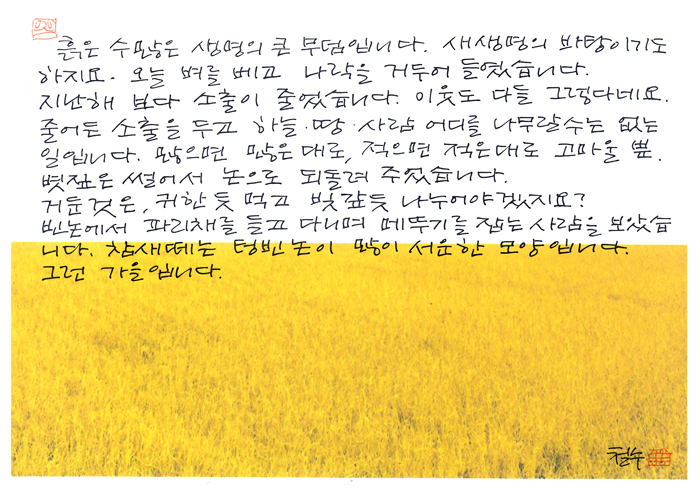 흙은 수많은 생명의 큰 무덤입니다. 새생명의 바탕이기도
하지요. 오늘 벼를 베고 나락을 거두어 들였습니다.
지난해 보다 소출이 줄였습니다. 이웃도 다들 그렇다네요.
줄어든 소출을 두고 하늘·땅·사람 어디를 나무랄수는 없는
일입니다. 많으면 많은대로, 적으면 적은대로 고마울 뿐.
볏짚은 썰어서 논으로 되돌려 주었습니다.
거둔것은, 귀한듯 먹고 빚갚듯 나누어야겠지요?
빈논에서 파리채를 들고 다니며 메뚜기를 잡는 사람을 보았습
니다. 참새떼는 텅빈 논이 많이 서운한 모양입니다.
그런 가을입니다.
철수